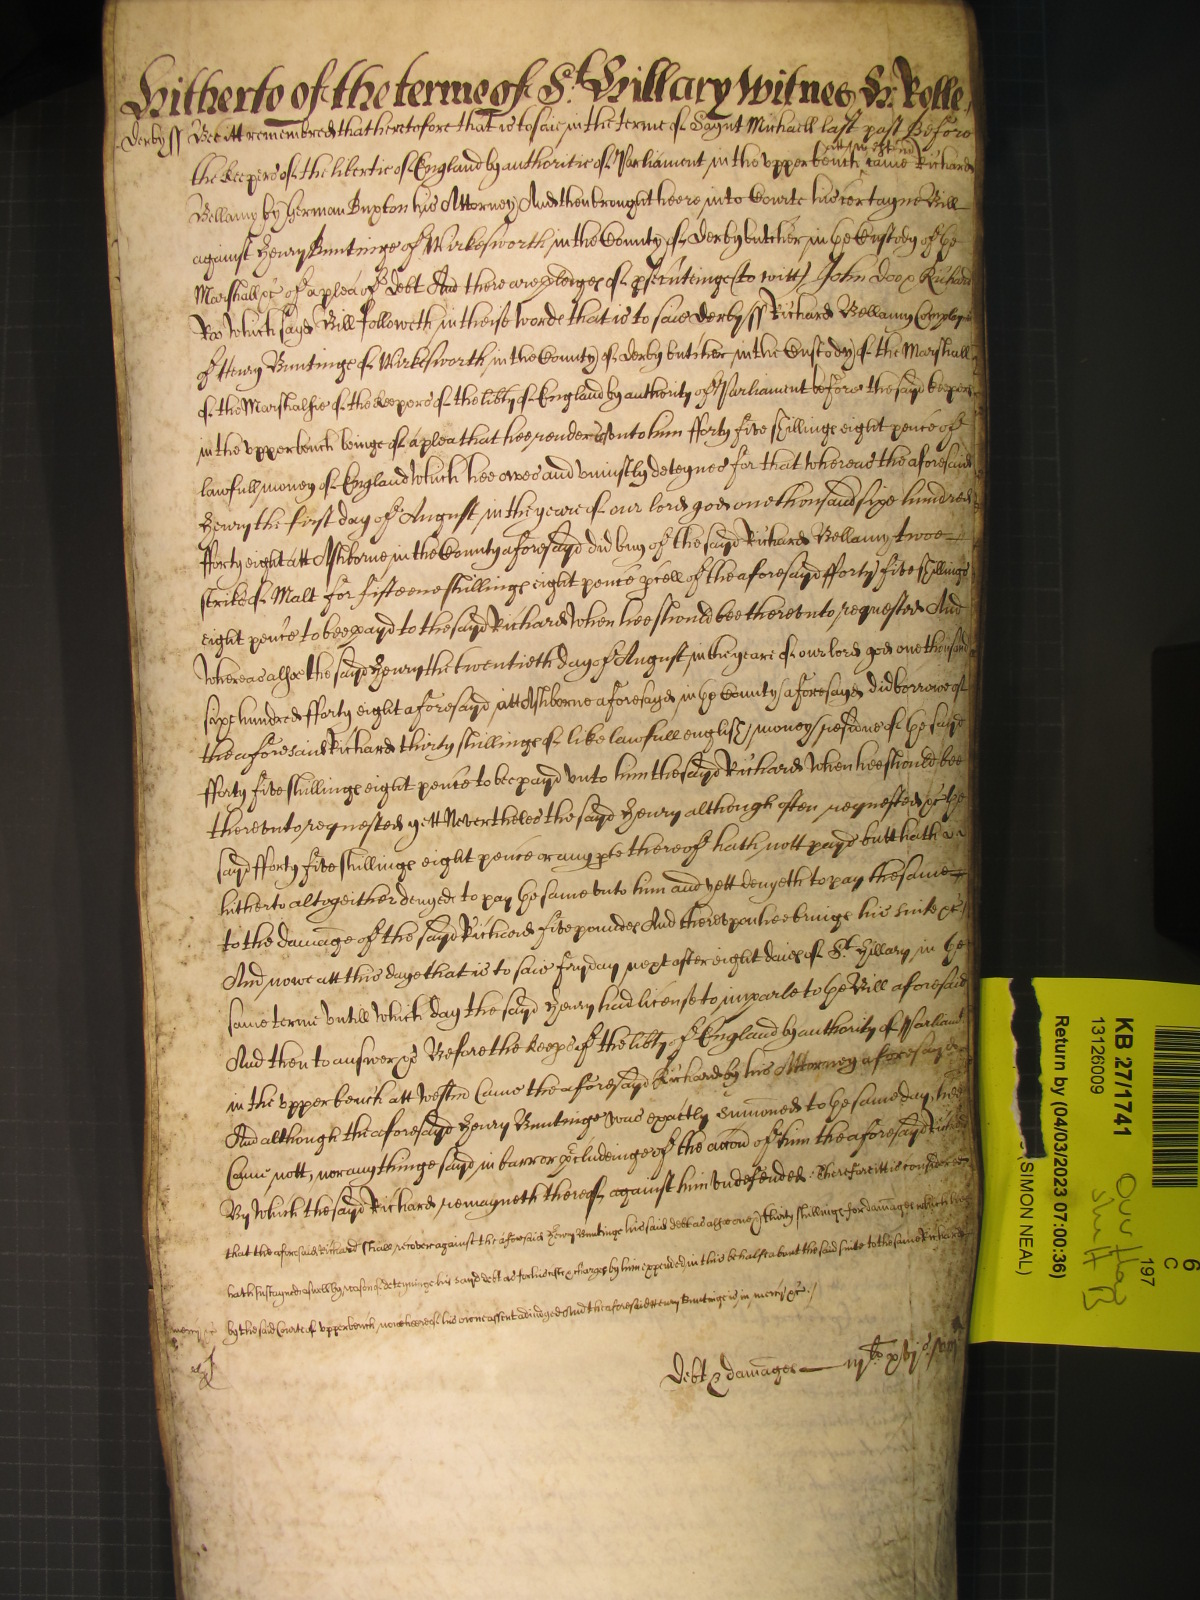 Hitherto of the terme of St. Hillary Witnes H. Rolle.
Derby ss Bee itt remembred that heretofore that is to saie in the terme of Saynt Michaell last past Before
the keepers of the libertie of England by authoritie of Parliament in the upper bench att Westm came Richard
Bellamy by Herman Buxton his Attorney And then brought heere into Courte his certayne Bill
against Henry Buntinge of Wirkesworth in the County of Derby butcher in the Custody of the
Marshall &c of a plea of debt And there are pledges of psecuteinge (to witt) John Doo & Richard
Roo Which sayd Bill followeth in theise words that is to saie Derby ss Richard Bellamy Comples
of Henry Buntinge of Wirkesworth in the County of Derby butcher in the Custody of the Marshall
of the Marshalsie of the keepers of the libty of England by authority of Parliament before the sayd keepers
in the upper bench beinge of a plea that hee render unto him fforty five shillinge eight pence of
lawfull money of England Which hee owes and uniustly deteynes for that whereas the aforesaid
Henry the first day of August in the yeare of our lord god one thousand sixe hundred
fforty eight att Ashborne in the County aforesayd did buy of the sayd Richard Bellamy twoe
strike of Malt for fifteene shillinge eight pence pcell of the aforesayd fforty five shillinge
eight pence to bee payd to the sayd Richard When hee should bee thereunto requested And
Whereas alsoe the sayd Henry the twentieth day of August in the yeare of our lord god one thousand
sixe hundred fforty eight aforesayd att Ashborne aforesayd in the County aforesayd did borrowe of
the aforesaid Richard thirty shillinge of like lawfull english money residue of the sayd
fforty five shillinge eight pence to bee payd unto him the sayd Richard When hee should bee
thereunto requested yett Nevertheles the sayd Henry although often requested &c the
sayd fforty five shillinge eight pence or any pte thereof hath nott payd butt hath
hitherto altogeither denyed to pay the same unto him and yett denyeth to pay the same
to the damage of the sayd Richard five poundes And thereupon hee bringe his suite &c
And nowe att this daye that is to saie fryday next after eight daies of St. Hillary in the
same terme untill Which day the sayd Henry had license to imparle to the Bill aforesaid
And then to answer &c Before the keeps of the libty of England by authority of Parliamt
in the upper bench att Westm Came the aforesayd Richard by his Attorney aforesayd
And although the aforesayd Henry Buntinge was exactly summoned to the same day hee
Came nott, nor anythinge sayd in barr or pcludeinge of the accon of him the aforesayd Richard
By Which the sayd Richard remayneth thereof against him undefended Therefore itt is considered
that the aforesaid Richard shall recover against the aforesaid Henry Buntinge his said debt as alsoe thirty shillinge for damages which hee
hath susteyned aswell by reason of deteyninge his sayd debt as for his costs & charges by him expended in this behalfe about the said suite to the same Richard
by the said Courte of upper bench nowe heere of his owne assent adiudged And the aforesaid Henry Buntinge is in mercy &c.
mercy
Debt & damages iijli xvs viijd
KB 27/1741
13126009
Return by (04/03/2023 07:00:36)
(SIMON NEAL)
197
C
6